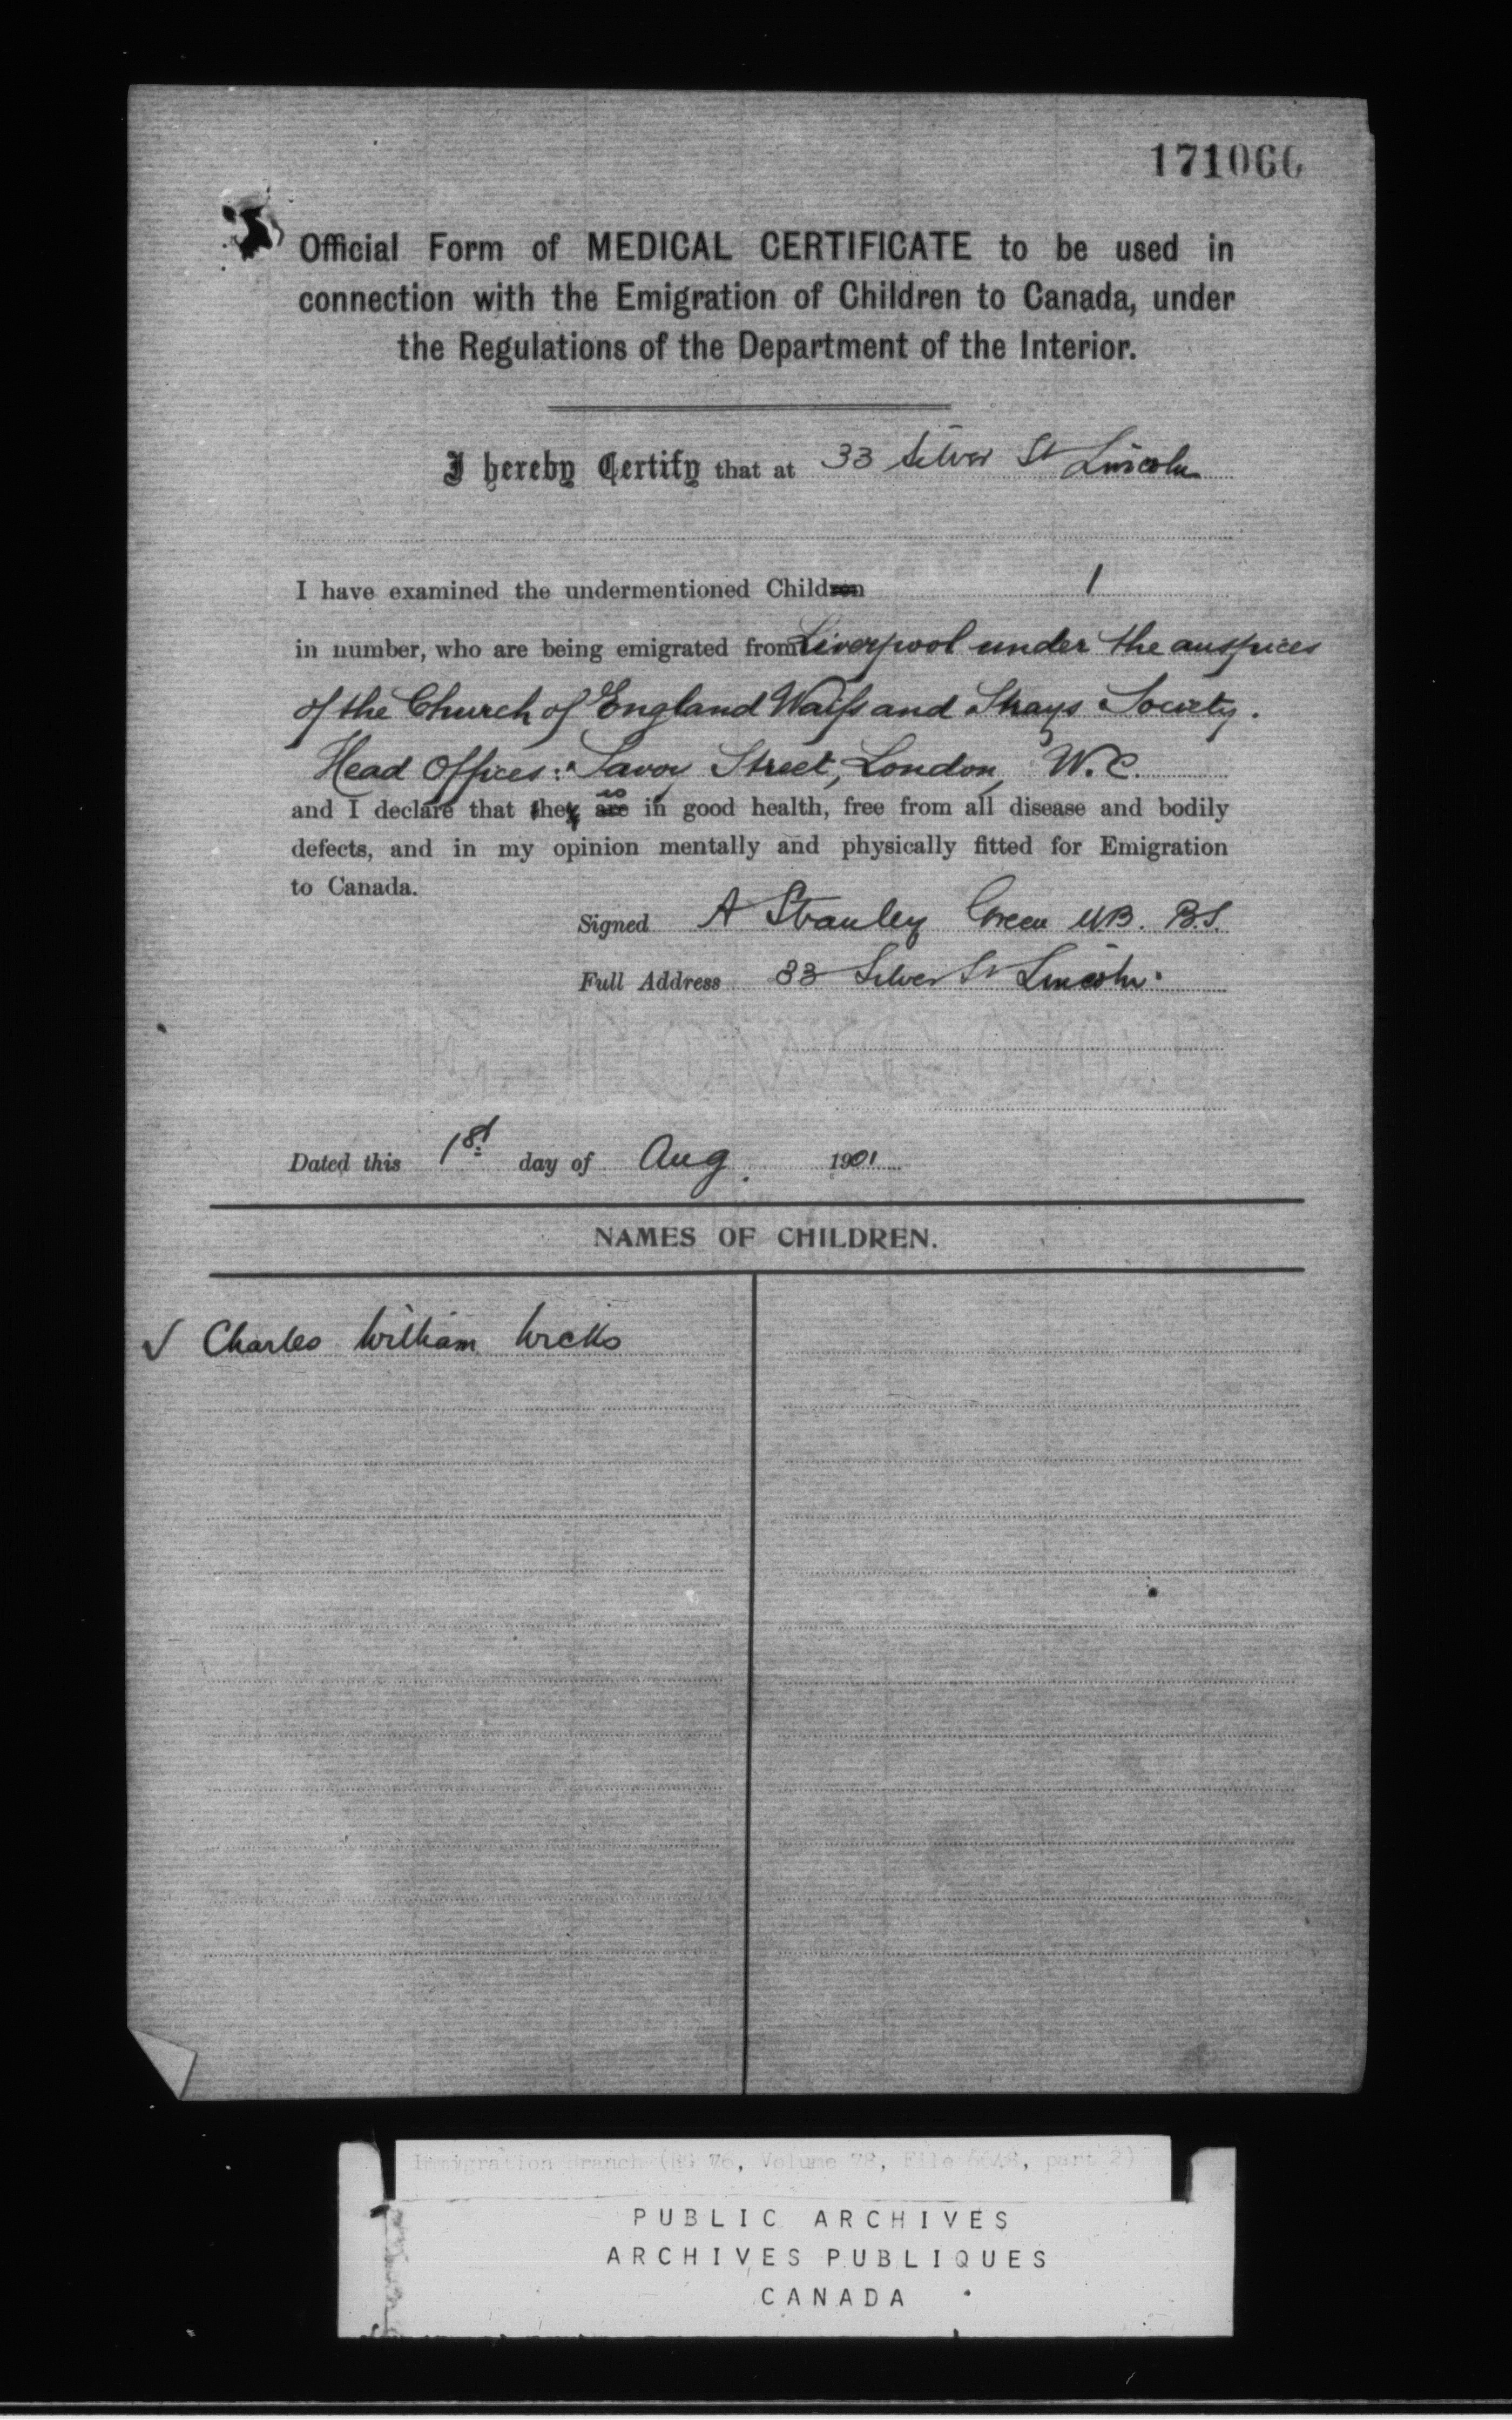 171066
Official Form of MEDICAL CERTIFICATE to be used in
connection with the Emigration of Children to Canada, under
the Regulations of the Department of the Interior.
I hereby Certify that at 33 Silver St Lincoln
I have examined the undermentioned Children 1
in number, who are being emigrated from Liverpool under the auspices
of the Church of England Waifs and Strays Society.
Head Offices: Savoy Street, London, W.C.
is
and I declare that they are in good health, free from all disease and bodily
defects, and in my opinion mentally and physically fitted for Emigration
to Canada.
Signed A Stanley Green MB. B.S.
Full Address 33 Silver St Lincoln.
Dated this 1st day of Aug. 1901
NAMES OF CHILDREN.
✓ Charles William Wicks
Immigration Branch (RG 76, Volume 78, File 6648, part 2)
PUBLIC ARCHIVES
ARCHIVES PUBLIQUES
CANADA